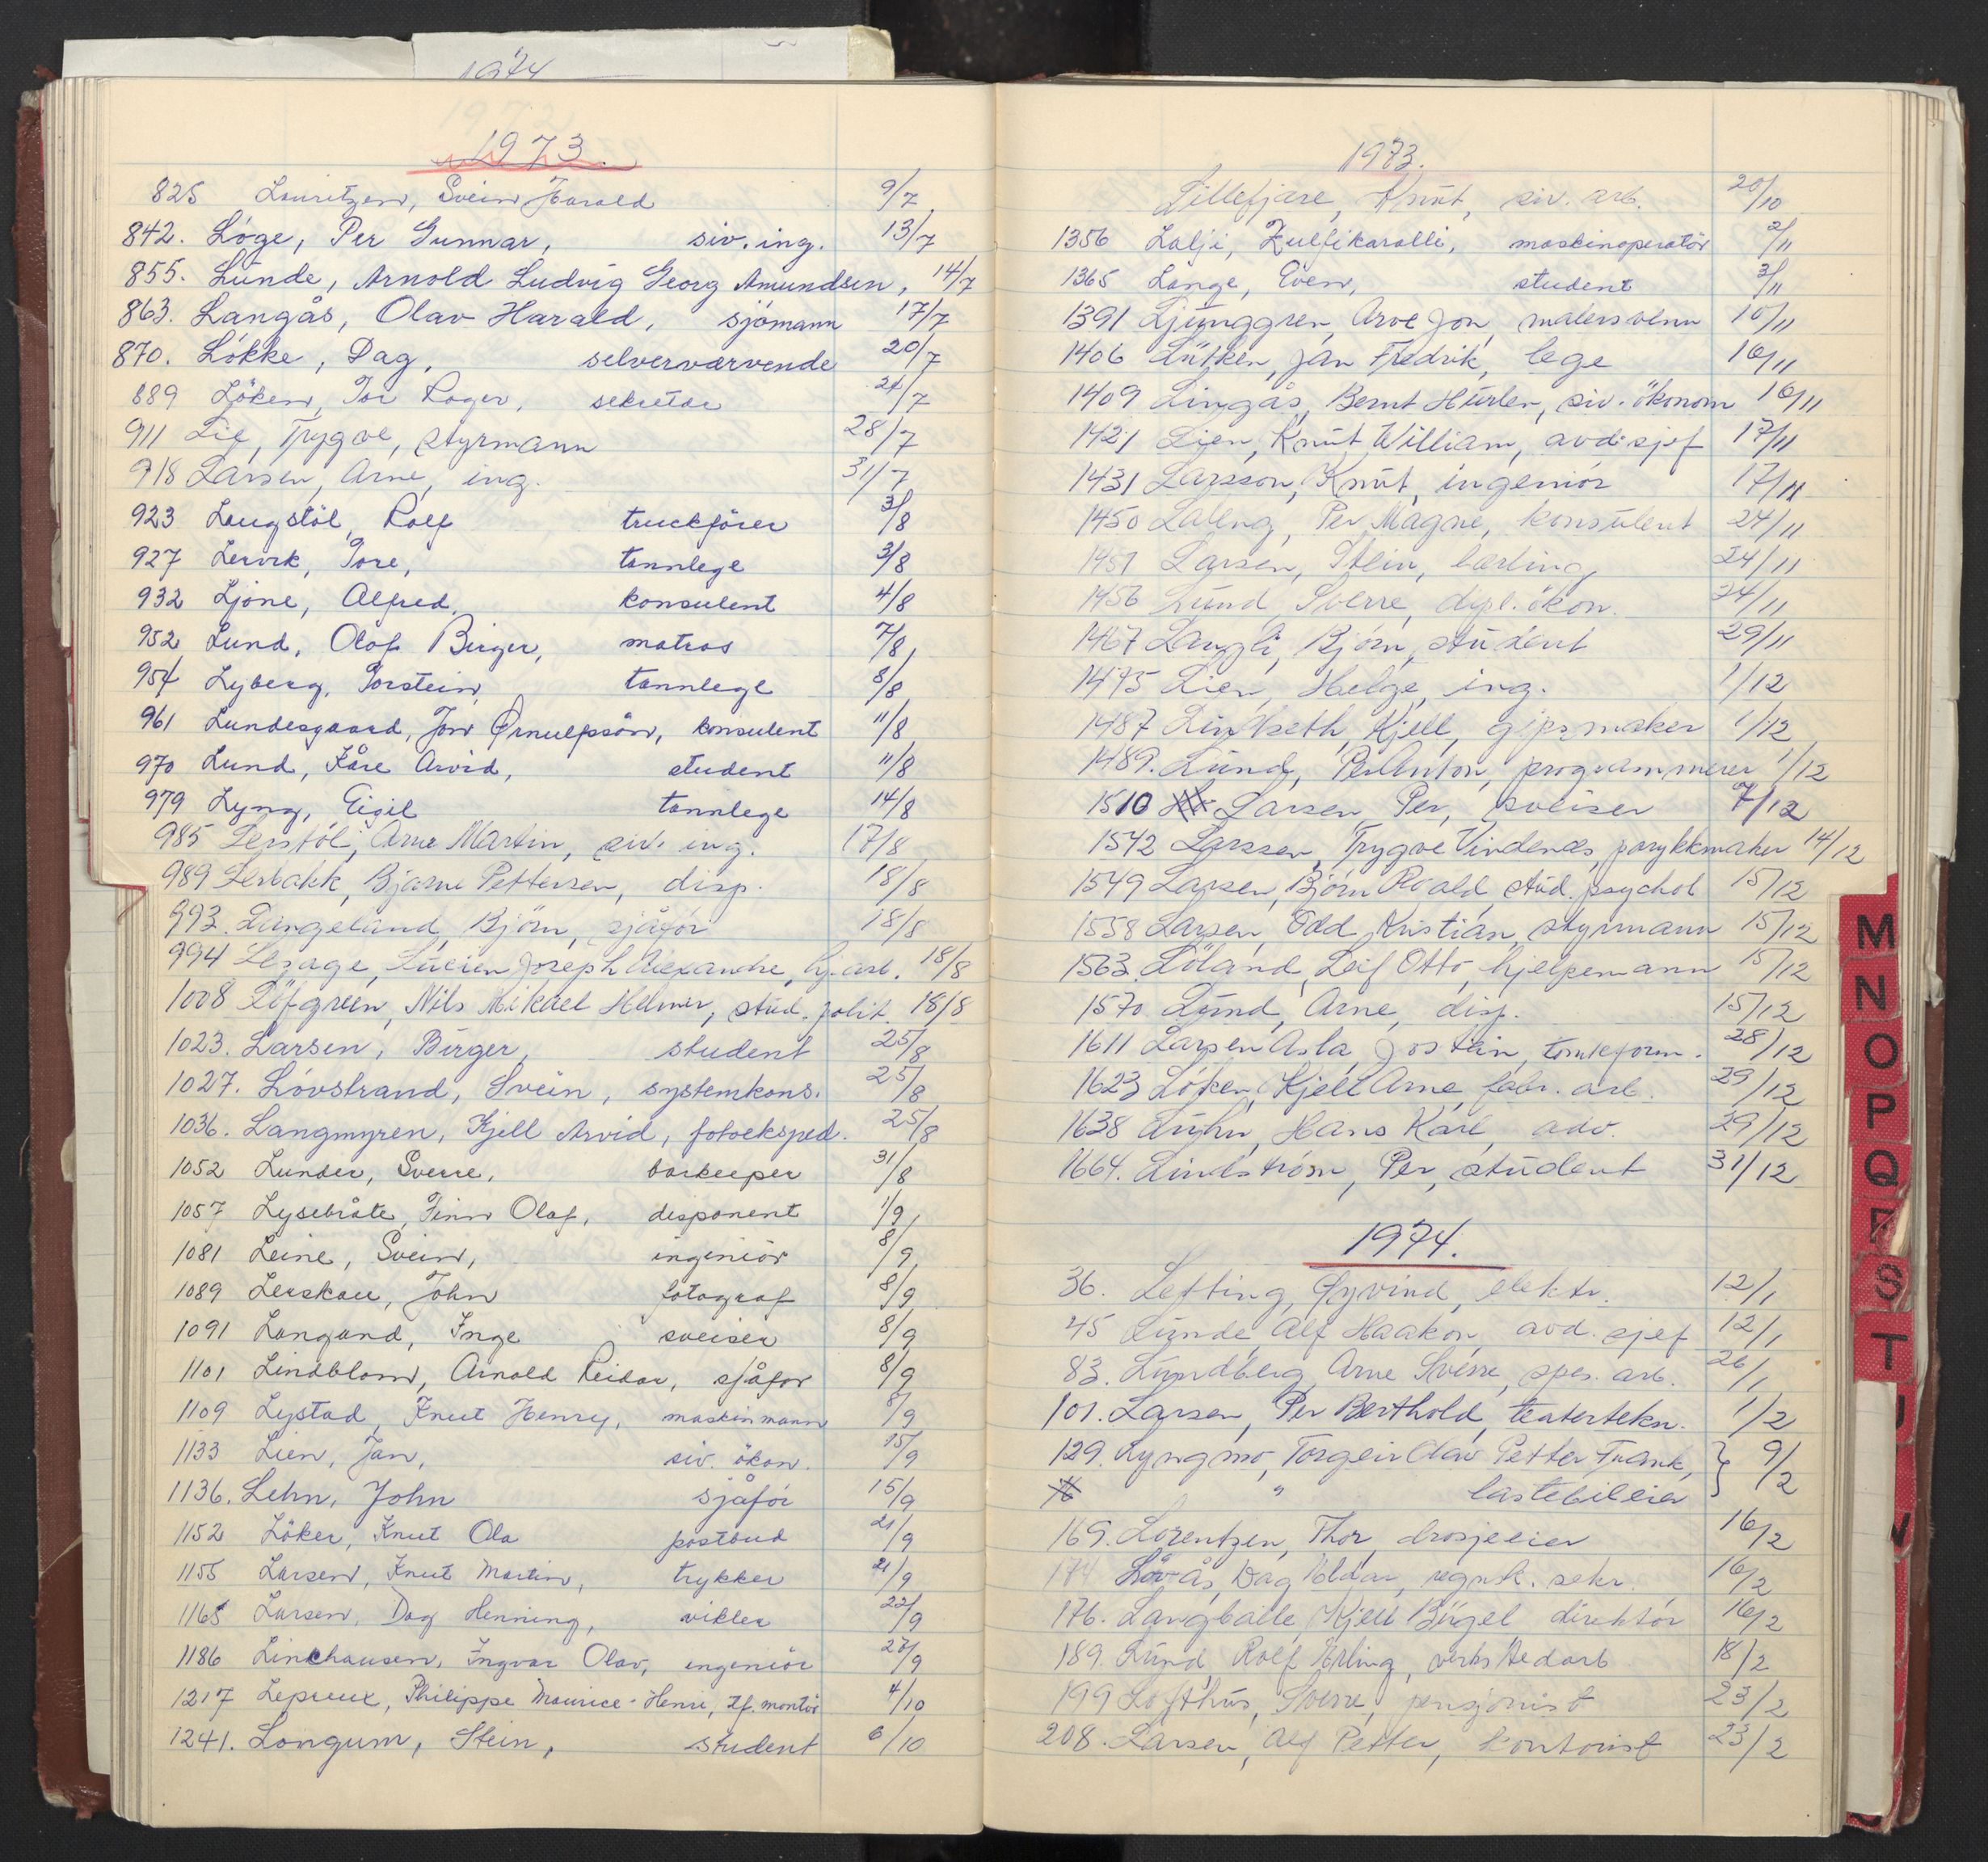 1974
1973.
825 Lauritzen, Svein Harald 9/7
842. Løge, Per Gunnar, siv. ing. 13/7
855. Lunde, Arnold Ludvig Georg Amundsen, 14/7
863. Langås, Olav Harald, sjømann 17/7
870. Løkke, Dag, selvervarvende 20/7
889 Løken, Tor Roger, sekretær 24/7
911 Lie, Trygve, styrmann 28/7
918 Larsen, Arne, ing. 31/7
923 Laugstøl, Rolf truckfører 3/8
927 Lervik, Tore, tannlege 3/8
932 Ljone, Alfred, konsulent 4/8
952 Lund, Olaf Birger, matros 7/8
954 Lyberg, Torstein, tannlege 8/8
961 Lundesgaard, Jon Ørnulfssøn, konsulent 11/8
970 Lund, Kåre Arvid, student 11/8
979 Lyng, Eigil tannlege 14/8
985 Lerstøl, Arne Martin, siv. ing. 17/8
989 Lerbakk, Bjarne Pettersen, disp. 18/8
993. Langeland, Bjørn, sjåfør 18/8
994 Lesage, Lucien Joseph Alexandre, hj. arb. 18/8
1008 Løfgreen, Nils Mikael Helmer, stud. polit. 18/8
1023. Larsen, Birger, student 25/8
1027. Løvstrand, Svein, systemkons. 25/8
1036. Langmyren, Kjell Arvid, fotoeksped. 25/8
1052 Lunder, Sverre, barkeeper 31/8
1057 Lysebråte, Finn Olaf, disponent 1/9
1081 Leine, Svein, ingeniør 8/9
1089 Lerskau, John fotograf 8/9
1091 Langand, Inge sveiser 8/9
1101 Lindblom, Arnold Reidar, sjåfør 8/9
1109 Lystad, Knut Henry, maskinmann 8/9
1133 Lien, Jan, siv. økon. 15/9
1136. Lehn, John sjåfør 15/9
1152 Løker, Knut Ola postbud 21/9
1155 Larsen, Knut Martin, trykker 21/9
1165 Larsen, Dag Henning, vikler 22/9
1186 Linchausen, Ingvar Olav, ingeniør 27/9
1217 Lepreux, Philippe Maurice-Henri, tlf. montør 4/10
1241. Longum, Stein, student 6/10
1973.
Lillefjære, Knut, siv. ark. 20/10
1356 Lalji, Zulfikaralli, maskinoperatør 2/11
1365 Lange, Even, student 3/11
1391 Ljunggren, Arve Jon, malersvenn 10/11
1406 Lütken, Jan Fredrik, lege 16/11
1409 Lingås, Bernt Hurlen, siv. økonom 16/11
1421 Lien, Knut William, avd. sjef 17/11
1431 Larsson, Knut, ingeniør 17/11
1450 Laleng, Per Magne, konsulent 24/11
1451 Larsen, Stein, lærling 24/11
1456 Lund, Sverre, dipl. økon. 24/11
1467 Langli, Bjørn, student 29/11
1475 Lien, Helge, ing. 1/12
1487 Lindseth, Kjell, gipsmaker 1/12
1489. Lund, Per Anton, programmerer 1/12
1510 Larsen, Per, sveiser 7/12
1542 Larssen, Trygve Vindenes, parykkmaker 14/12
1549 Larsen, Bjørn Roald, stud. psychol 15/12
1558 Larsen, Odd Kristian, styrmann 15/12
1563. Løland, Leif Otto, hjelpemann 15/12
1570 Lund, Arne, disp. 15/12
1611 Larsen Asla, Jostein, tomteform. 28/12
1623 Løken, Kjell Arne, fabr. arb. 29/12
1638 Luhn, Hans Karl, adv. 29/12
1664. Lindstrøm, Per, student 31/12
1974.
36. Lefting, Øyvind, elektr. 12/1
45 Lunde, Alf Haakon, avd. sjef 12/1
83. Lundberg, Arne Sverre, spes. arb. 26/1
101. Larsen, Per Berthold, teatertekn. 1/2
129. Lyngmo, Torgeir Olav Petter Frank, } 9/2
" lastebileier
169. Lorentzen, Thor, drosjeeier 16/2
174 Løvås, Dag Voldar, regnsk. sekr. 16/2
176. Langballe, Kjell Bügel direktør 16/2
189. Lund, Rolf Erling, verkstedarb 18/2
199 Lofthus, Sverre, pensjonist 23/2
208. Larsen, Alf Petter, kontorist 23/2
M
N
O
P
Q
R
S
T
U
V